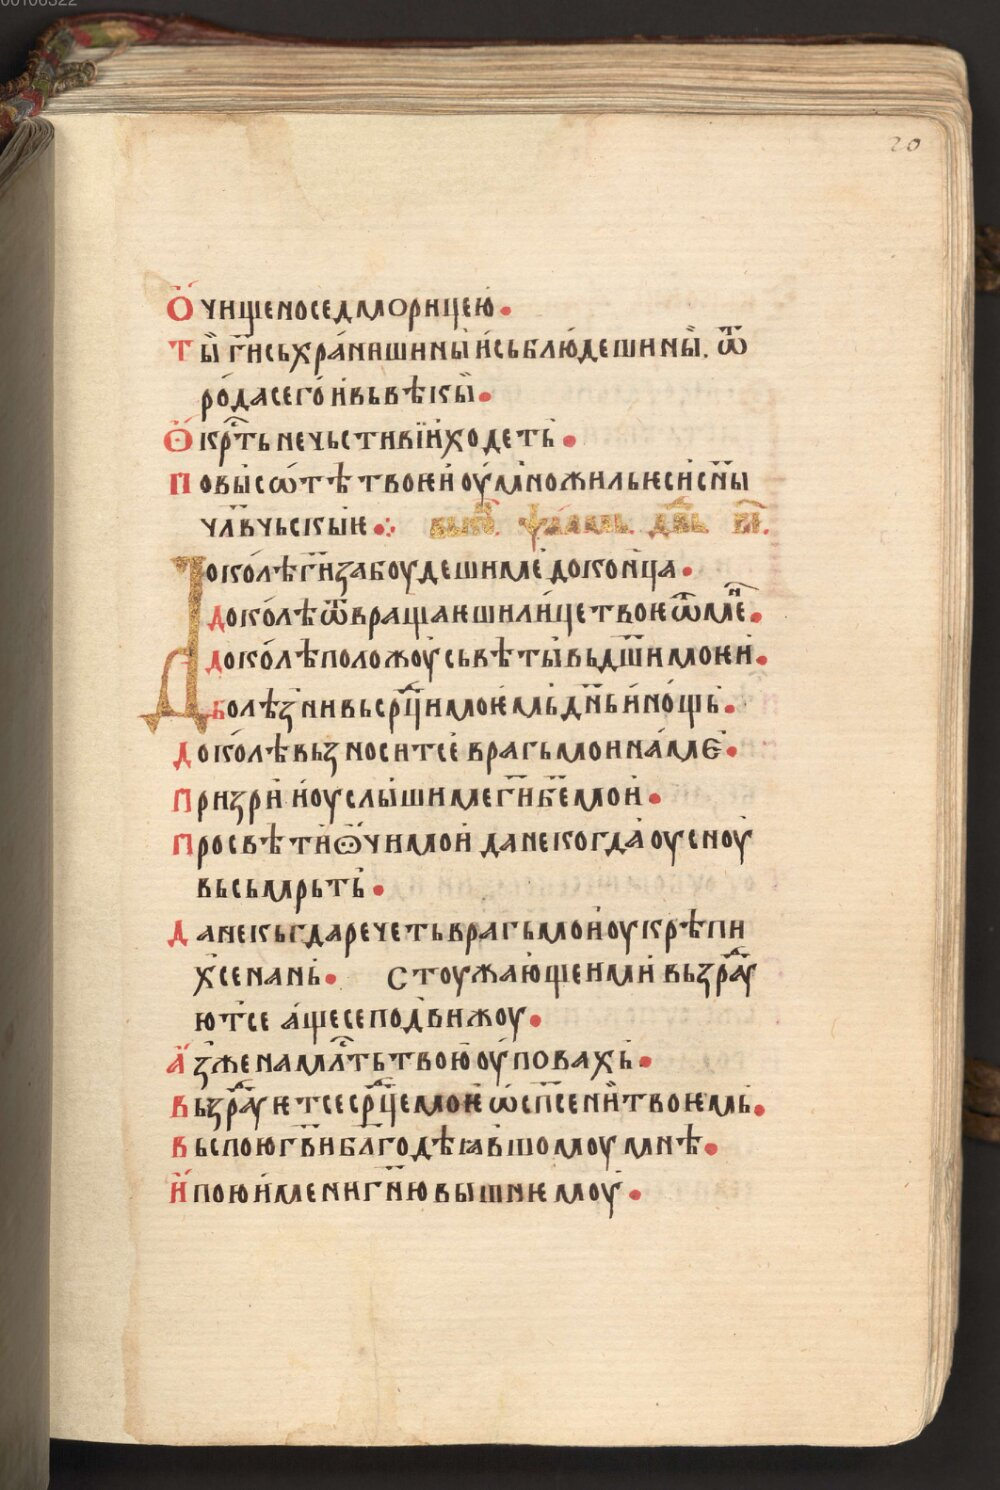 20
Ѻ҆чищено седморицею.
Ты̀ г҃и съхра́ниши ны̀ и҆ съблю́деши ны̀. ѿ
ро́да сего́ и҆ въ вѣкы̀.
Ѻ҆крⷭ҇ть нечьстивїи҆ ходеть.
По вы́сѡ́тѣ твоѥи҆ оу҆множиль ѥси с҃ны
чл҃вчьскыѥ.
Доко́лѣ г҃и забоудеши ме́ до кон́ца.
доко́лѣ ѿвращаѥши лицѐ твоѥ ѿ менⷷ.
доко́лѣ положоу́ съвѣты̀ въ дш҃и моѥи.
болѣзни въ срⷣци моѥмь дн҃ь и҆ но́щь.
доко́лѣ възноситсе́ врагь мои на́ ме.
Призрѝ и҆ оуслы́ши ме г҃и б҃е мои.
Просвѣтѝ ѻ҆чи мои да некогда̀ оусноу́
въ съмрьть.
Да не къгда речеть врагь мои оу҆крѣпи
хсе на нь. Стоужаю́щеи ми възрⷣау
ютсе а҆ще се подвижоу.
А҆зже на млⷭ҇ть твою оу҆повахь.
Възрⷣауѥтсе срⷣце моѥ ѡ҆ сп҃сени твоѥмь.
Въспою г҃ви благодѣꙗв́шомоу мнѣ.
И҆ пою и҆мени г҃ню вышнѥмоу.